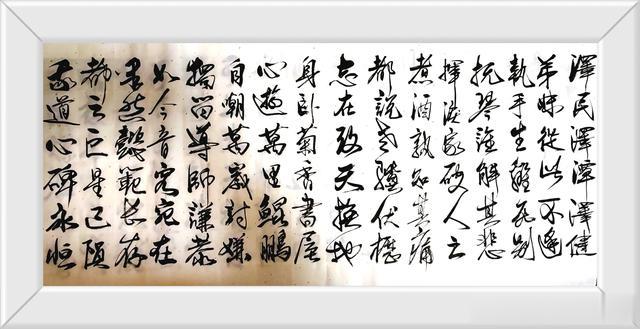 澤民澤潭澤健
弟妹從此不
執手生離死別
撫琴誰解其悲
揮淚家破人亡
煮酒孰知其痛
都說老驥伏櫪
志在改天換地
身卧菊香書屋
心遊萬里鯤鵬
自嘲萬歲封嫌
獨留導師謙恭
如今音容宛在
果然懿範長存
都云巨星已隕
我道心碑永恒